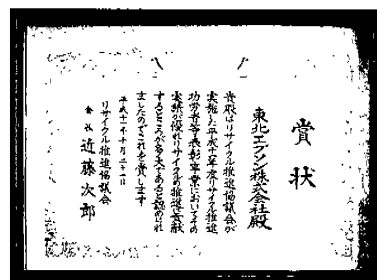 賞状
東北エプソン株式会社殿
貴殿はリサイクル推進協議会が
実施した平成十二年度リサイクル推進
功労者等表彰事業においてその
実績が優れリサイクルの推進に貢献
するところが多大であると認められ
ましたのでこれを賞します
平成十二年十月二十日
リサイクル推進協議会
会長 近藤次郎